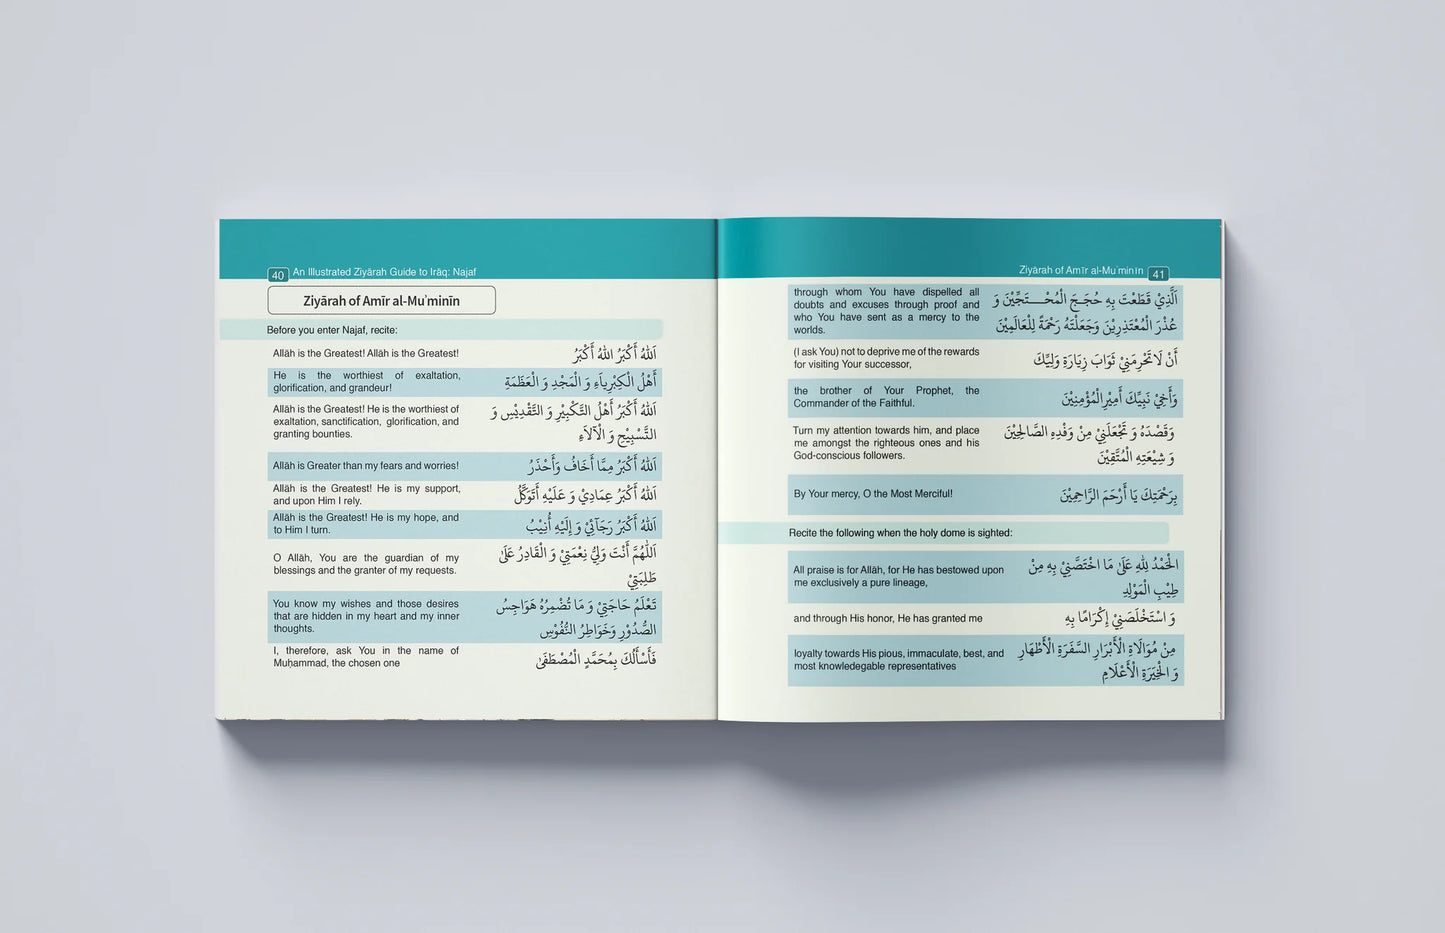 40 An Illustrated Ziyārah Guide to Irāq: Najaf
Ziyārah of Amīr al-Muʾminīn
Before you enter Najaf, recite:
Allāh is the Greatest! Allāh is the Greatest!
اَللهُ أَكْبَرُ اللهُ أَكْبَرُ
He is the worthiest of exaltation,
glorification, and grandeur!
أَهْلُ الْكِبْرِيَآءِ وَ الْمَجْدِ وَ الْعَظَمَةِ
Allāh is the Greatest! He is the worthiest of
exaltation, sanctification, glorification, and
granting bounties.
اَللهُ أَكْبَرُ أَهْلُ التَّكْبِيْرِ وَ التَّقْدِيْسِ وَ
التَّسْبِيْحِ وَ الْآلَاءِ
Allāh is Greater than my fears and worries!
اَللهُ أَكْبَرُ مِمَّا أَخَافُ وَأَحْذَرُ
Allāh is the Greatest! He is my support,
and upon Him I rely.
اَللهُ أَكْبَرُ عِمَادِيْ وَ عَلَيْهِ أَتَوَكَّلُ
Allāh is the Greatest! He is my hope, and
to Him I turn.
اَللهُ أَكْبَرُ رَجَآئِيْ وَ إِلَيْهِ أُنِيْبُ
O Allāh, You are the guardian of my
blessings and the granter of my requests.
اَللّٰهُمَّ أَنْتَ وَلِيُّ نِعْمَتِيْ وَ الْقَادِرُ عَلَىٰ
طَلِبَتِيْ
You know my wishes and those desires
that are hidden in my heart and my inner
thoughts.
تَعْلَمُ حَاجَتِيْ وَ مَا تُضْمِرُهُ هَوَاجِسُ
الصُّدُوْرِ وَخَوَاطِرُ النُّفُوْسِ
I, therefore, ask You in the name of
Muḥammad, the chosen one
فَأَسْأَلُكَ بِمُحَمَّدٍ الْمُصْطَفَىٰ
Ziyārah of Amīr al-Muʾminīn 41
through whom You have dispelled all
doubts and excuses through proof and
who You have sent as a mercy to the
worlds.
اَلَّذِيْ قَطَعْتَ بِهِ حُجَجَ الْمُحْتَجِّيْنَ وَ
عُذْرَ الْمُعْتَذِرِيْنَ وَجَعَلْتَهُ رَحْمَةً لِلْعَالَمِيْنَ
(I ask You) not to deprive me of the rewards
for visiting Your successor,
أَنْ لَا تَحْرِمَنِيْ ثَوَابَ زِيَارَةِ وَلِيِّكَ
the brother of Your Prophet, the
Commander of the Faithful.
وَأَخِيْ نَبِيِّكَ أَمِيْرِالْمُؤْمِنِيْنَ
Turn my attention towards him, and place
me amongst the righteous ones and his
God-conscious followers.
وَقَصْدَهُ وَ تَجْعَلَنِيْ مِنْ وَفْدِهِ الصَّالِحِيْنَ
وَ شِيْعَتِهِ الْمُتَّقِيْنَ
By Your mercy, O the Most Merciful!
بِرَحْمَتِكَ يَا أَرْحَمَ الرَّاحِمِيْنَ
Recite the following when the holy dome is sighted:
All praise is for Allāh, for He has bestowed upon
me exclusively a pure lineage,
الْحَمْدُ لِلّٰهِ عَلَىٰ مَا اخْتَصَّنِيْ بِهِ مِنْ
طِيْبِ الْمَوْلِدِ
and through His honor, He has granted me
وَ اسْتَخْلَصَنِيْ إِكْرَامًا بِهِ
loyalty towards His pious, immaculate, best, and
most knowledegable representatives
مِنْ مُوَالَاةِ الْأَبْرَارِ السَّفَرَةِ الْأَطْهَارِ
وَ الْخِيَرَةِ الْأَعْلَامِ